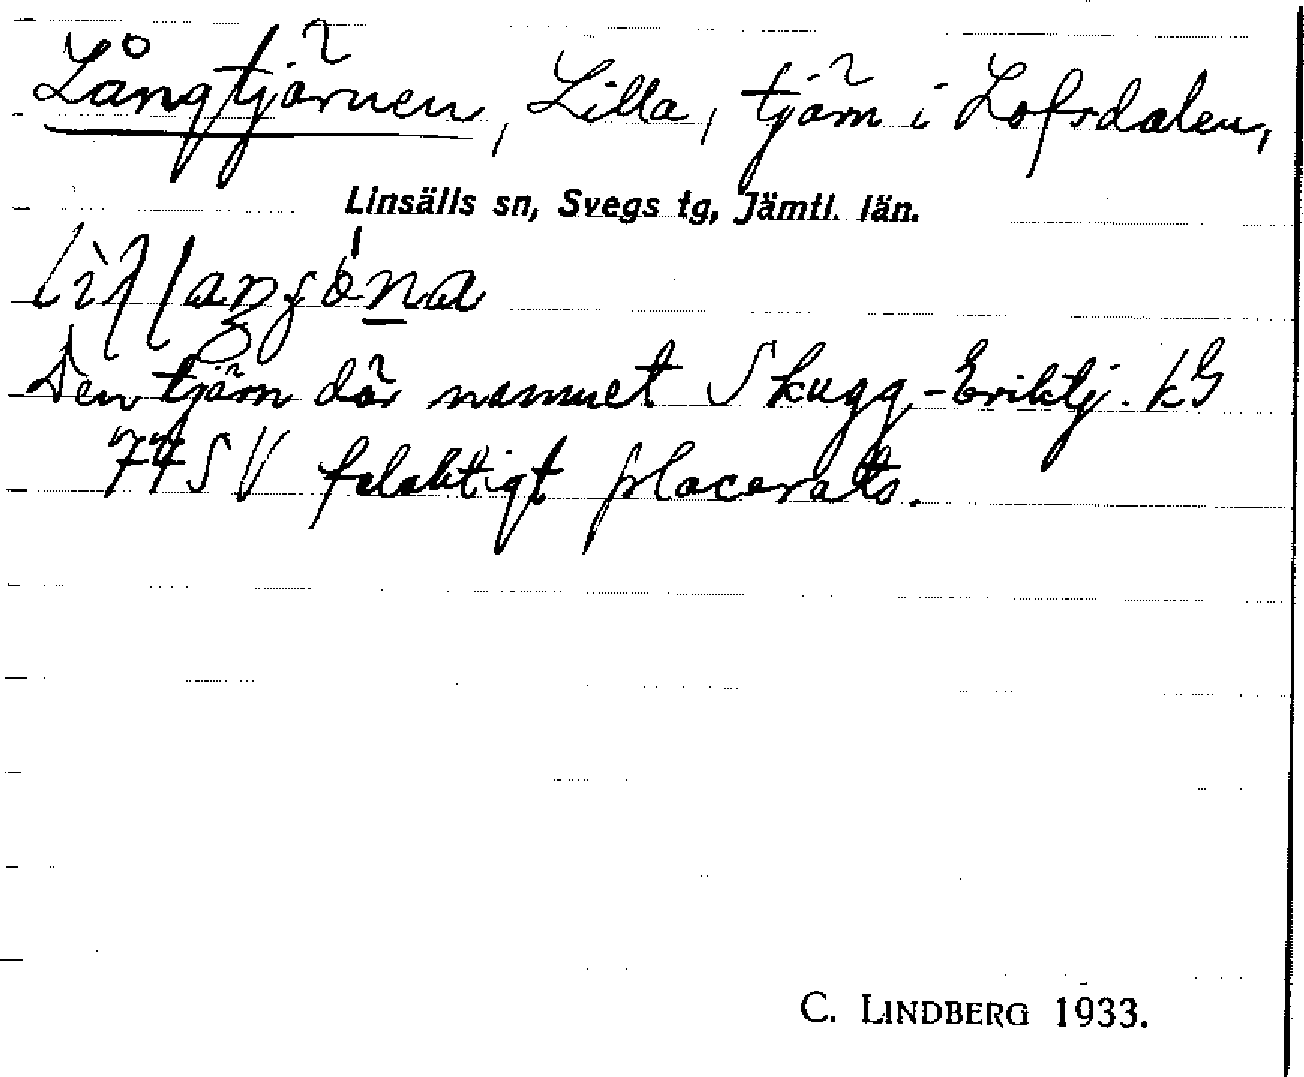 Långtjärnen, Lilla, tjärn i Lofsdalen,
Linsälls sn, Svegs tg, Jämtl. län.
Den tjärn där namnet Skugg-Eriktj. kG
77SV felaktigt placerats.
C. LINDBERG 1933.